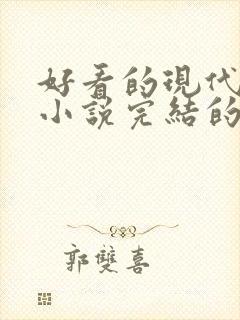 好看的現代
小說完結的
郭雙喜